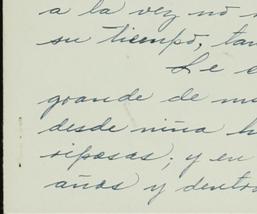 a la vez no
su tiempo, tan
Le e
grande de m
desde niña h
riposas; y en
años y dentro